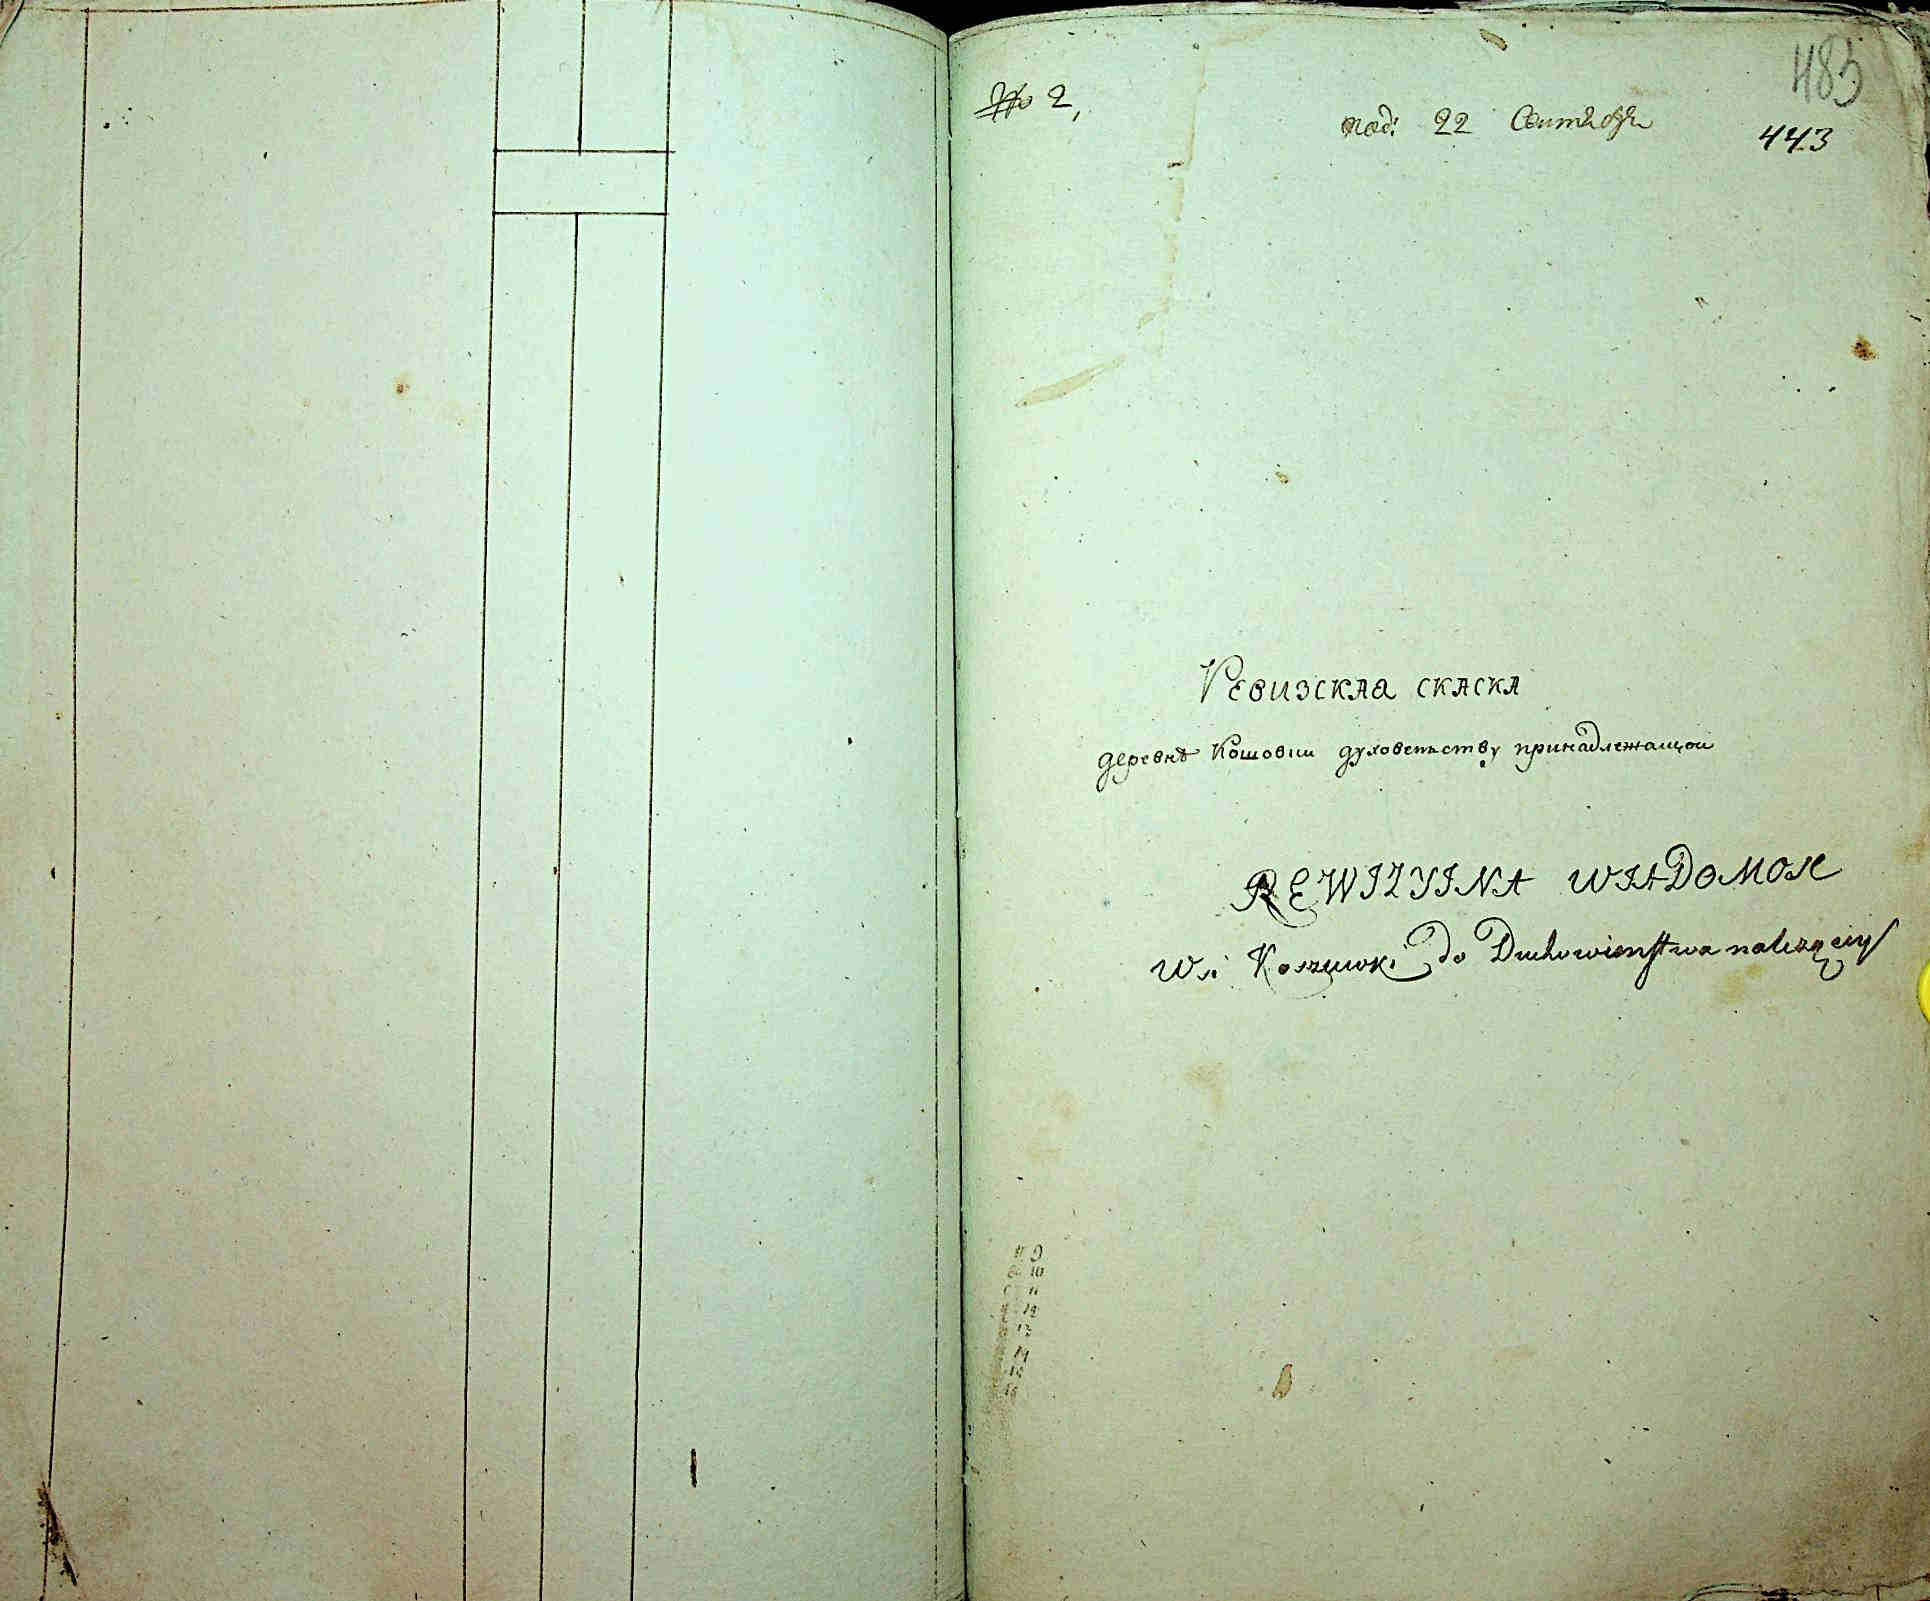 № 2,
под: 22 Сентября
483
443
Ревизская скаска
деревнѣ Кошовки духовенству принадлежащой
REWIZYINA WIADOMOSC
Wsi Koszowki do Duchowienstwa należącey
9
10
11
12
13
14
15
16